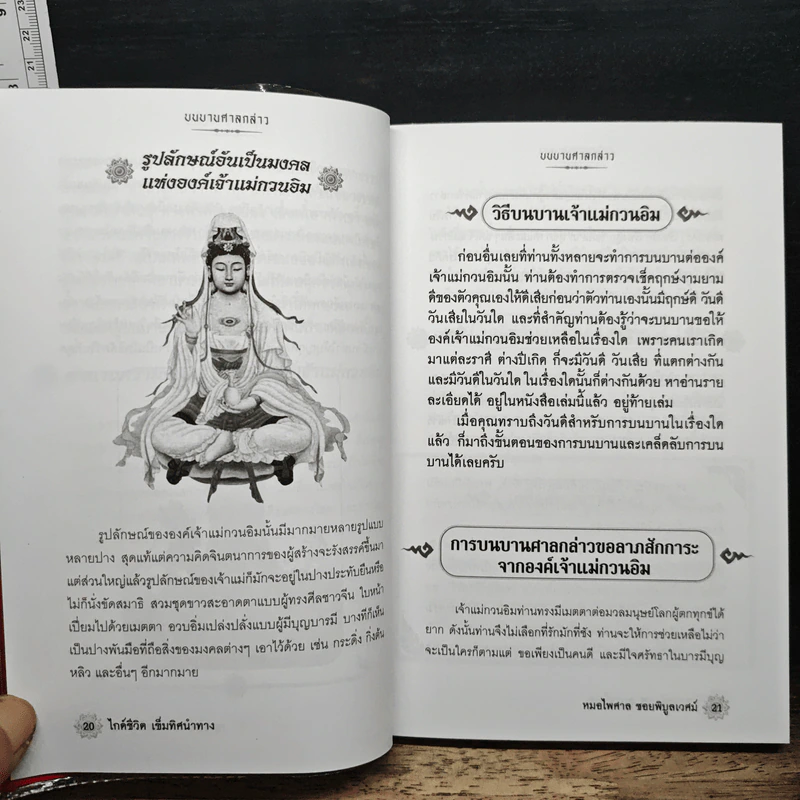 บนบานศาลกล่าว
รูปลักษณ์อันเป็นมงคล
แห่งองค์เจ้าแม่กวนอิม
รูปลักษณ์ขององค์เจ้าแม่กวนอิมนั้นมีมากมายหลายรูปแบบ
หลายปาง สุดแท้แต่ความคิดจินตนาการของผู้สร้างจะรังสรรค์ขึ้นมา
แต่ส่วนใหญ่แล้วรูปลักษณ์ของเจ้าแม่ก็มักจะอยู่ในปางประทับยืนหรือ
ไม่ก็นั่งขัดสมาธิ สวมชุดขาวสะอาดตาแบบผู้ทรงศีลชาวจีน ใบหน้า
เปี่ยมไปด้วยเมตตา อวบอิ่มเปล่งปลั่งแบบผู้มีบุญบารมี บางทีก็เห็น
เป็นปางพันมือที่ถือสิ่งของมงคลต่างๆ เอาไว้ด้วย เช่น กระดิ่ง กิ่งต้น
หลิว และอื่นๆ อีกมากมาย
20 ไกด์ชีวิต เข็มทิศนำทาง
บนบานศาลกล่าว
วิธีบนบานเจ้าแม่กวนอิม
ก่อนอื่นเลยที่ท่านทั้งหลายจะทำการบนบานต่อองค์
เจ้าแม่กวนอิมนั้น ท่านต้องทำการตรวจเช็คฤกษ์งามยาม
ดีของตัวคุณเองให้ดีเสียก่อนว่าตัวท่านเองนั้นมีฤกษ์ดี วันดี
วันเสียในวันใด และที่สำคัญท่านต้องรู้ว่าจะบนบานขอให้
องค์เจ้าแม่กวนอิมช่วยเหลือในเรื่องใด เพราะคนเราเกิด
มาแต่ละราศี ต่างปีเกิด ก็จะมีวันดี วันเสีย ที่แตกต่างกัน
และมีวันดีในวันใด ในเรื่องใดนั้นก็ต่างกันด้วย หาอ่านราย
ละเอียดได้ อยู่ในหนังสือเล่มนี้แล้ว อยู่ท้ายเล่ม
เมื่อคุณทราบถึงวันดีสำหรับการบนบานในเรื่องใด
แล้ว ก็มาถึงขั้นตอนของการบนบานและเคล็ดลับการบน
บานได้เลยครับ
การบนบานศาลกล่าวขอลาภสักการะ
จากองค์เจ้าแม่กวนอิม
เจ้าแม่กวนอิมท่านทรงมีเมตตาต่อมวลมนุษย์โลกผู้ตกทุกข์ได้
ยาก ดังนั้นท่านจึงไม่เลือกที่รักมักที่ชัง ท่านจะให้การช่วยเหลือไม่ว่า
จะเป็นใครก็ตามแต่ ขอเพียงเป็นคนดี และมีใจศรัทธาในบารมีบุญ
หมอไพศาล ซอยพิบูลเวศม์ 21